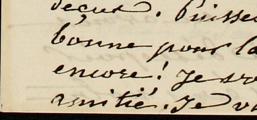 decus. Puisse
bonne pour la
encore! Je
amitié. Je